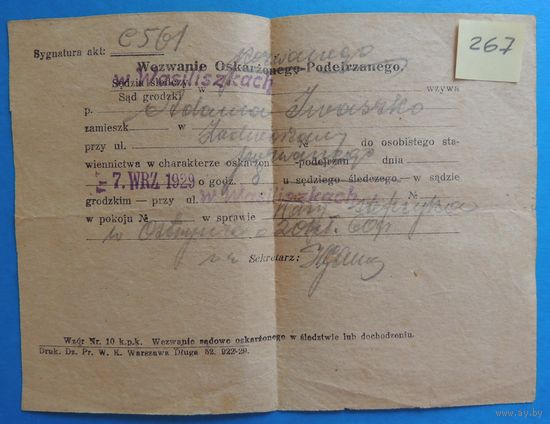 Sygnatura akt: C 561
267
Wezwanie Oskarżonego-Podejrzanego.
pozwanego
Sędzia śledczy w wzywa
w Wasiliszkach
Sąd grodzki
p. Adama Iwaszko
zamieszk. w
przy ul. № do osobistego sta-
wiennictwa w charakterze oskarżon. -podejrzan. dnia
pozwanego
7. WRZ 1929 o godz. u sędziego śledczego. w sądzie
grodzkim — przy ul. w Wasiliszkach №
w pokoju № w sprawie
w o 20 zł. 60 gr
Sekretarz:
Wzór Nr. 10 k.p.k. Wezwanie sądowe oskarżonego w śledztwie lub dochodzeniu.
Druk. Dz. Pr. W. K. Warszawa Długa 52. 922-29.
www.ay.by